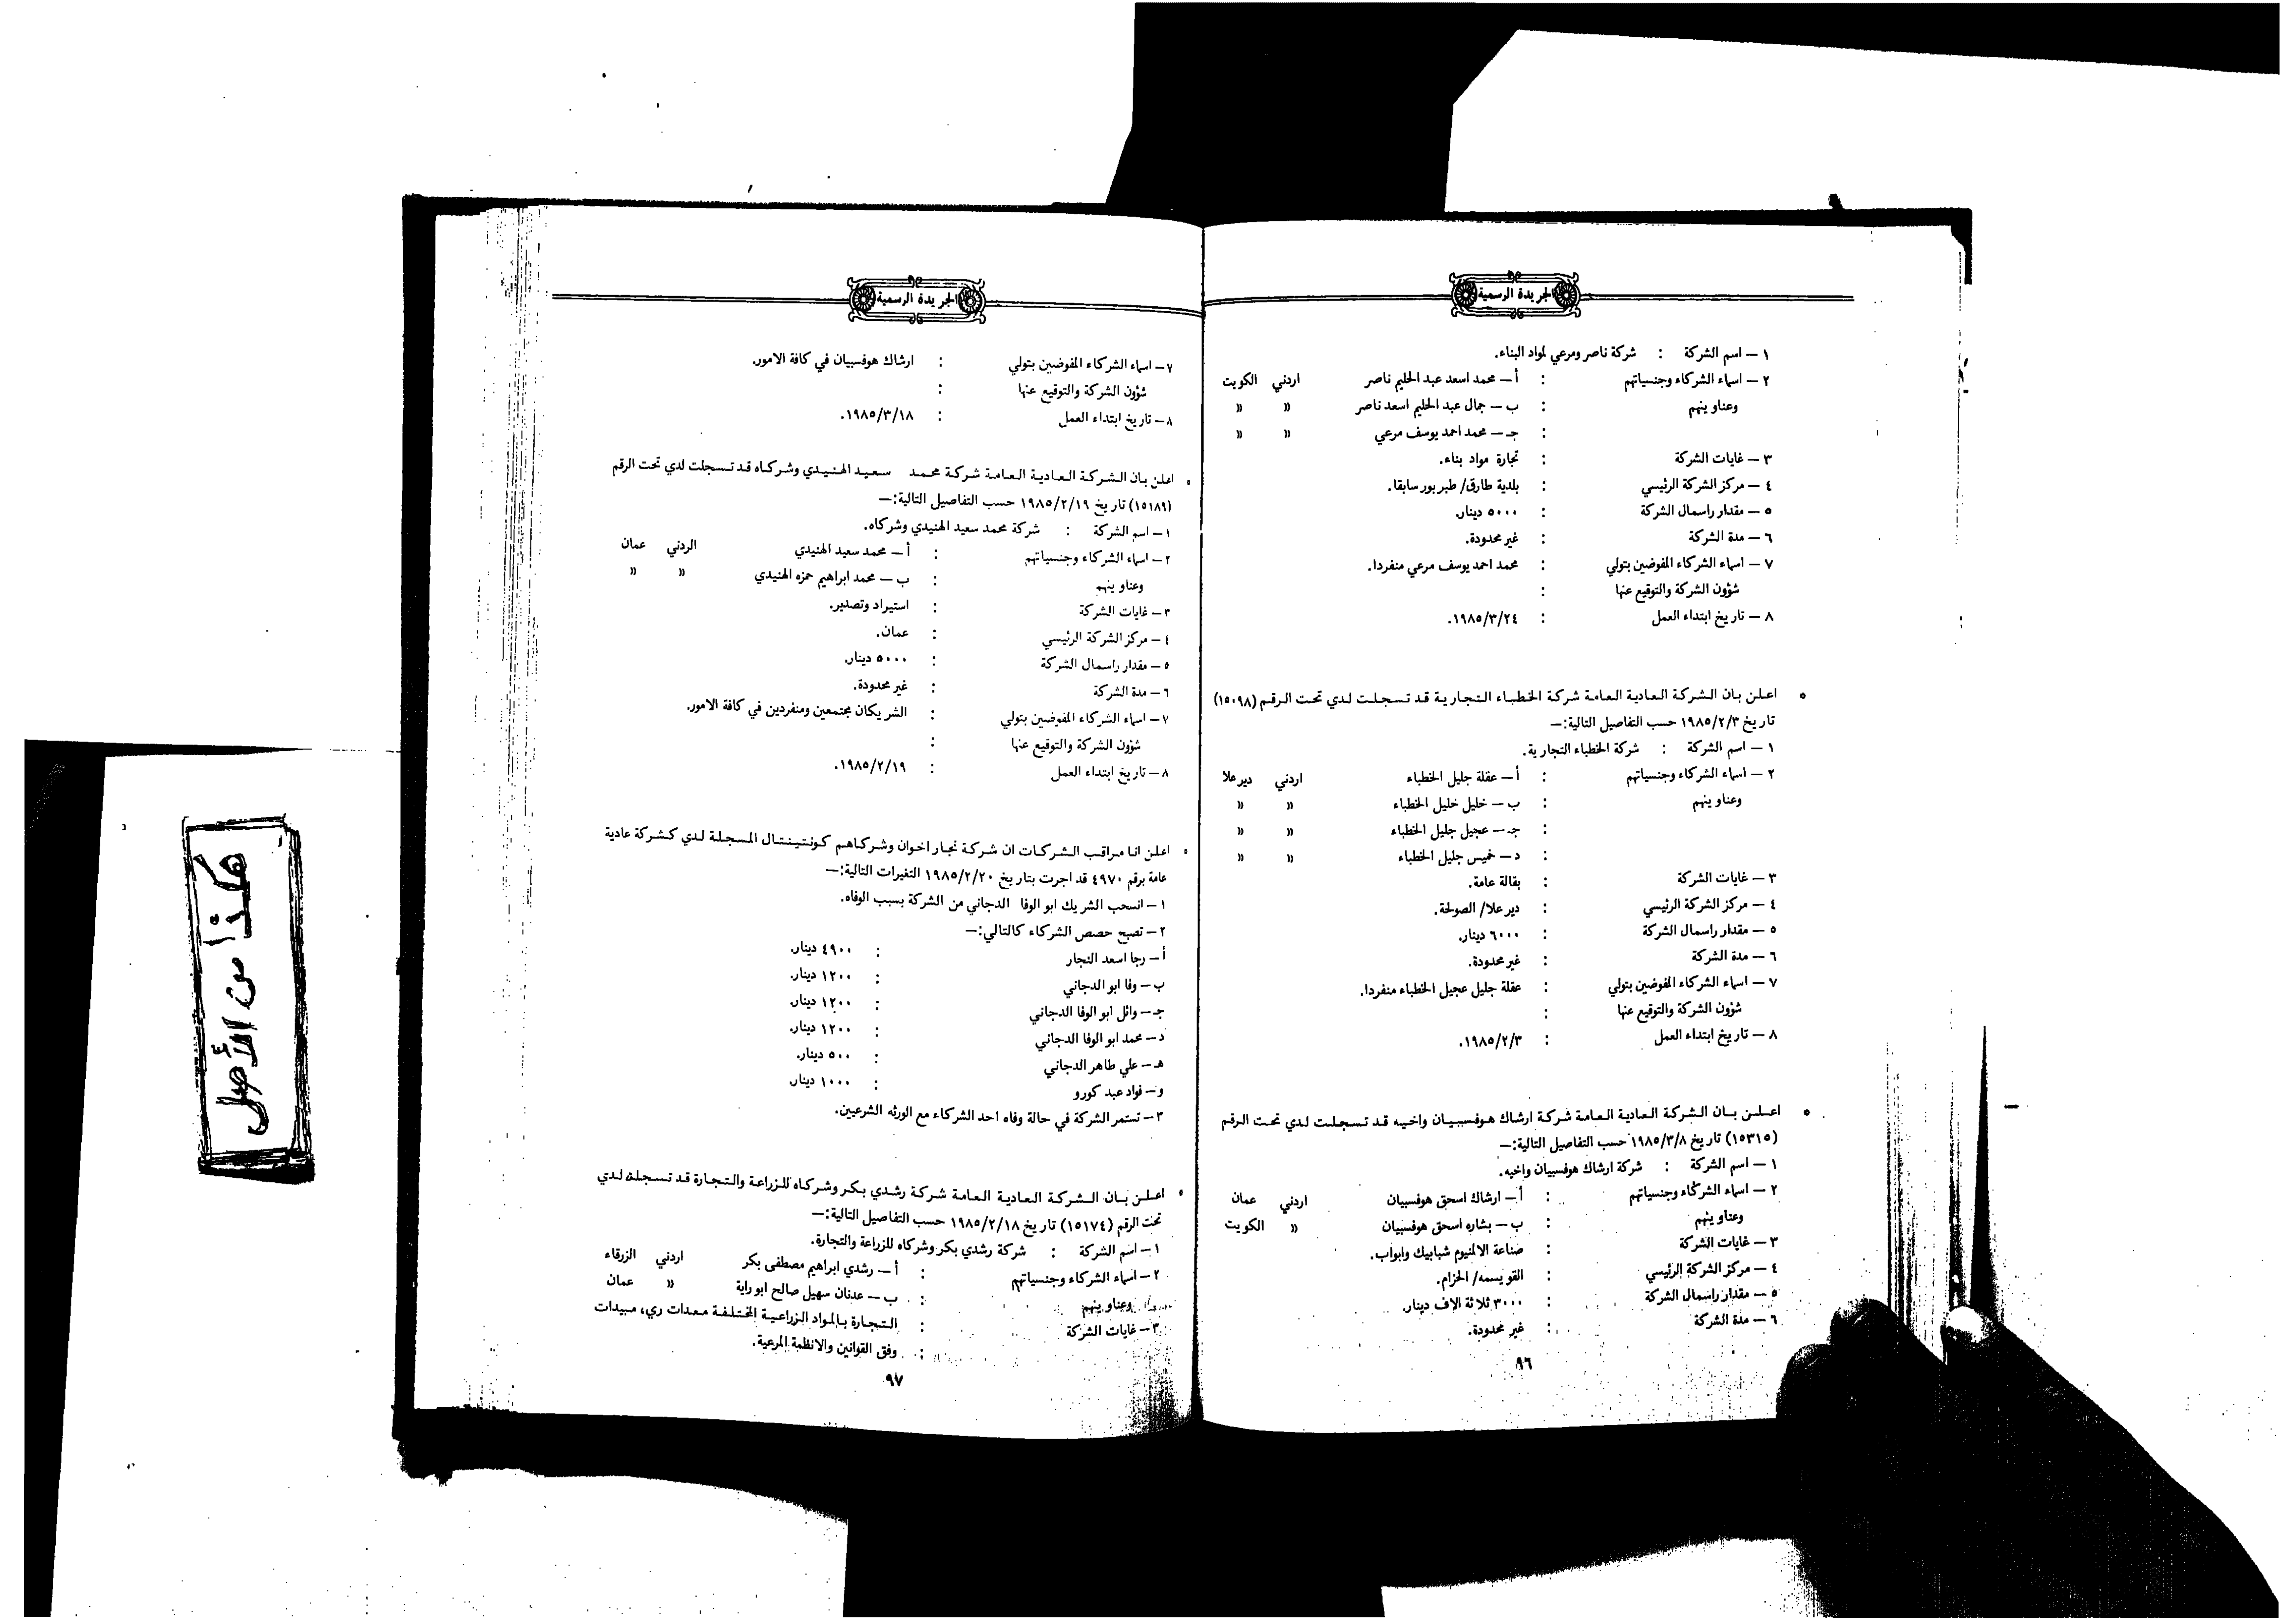 الجريدة الرسمية
١ – اسم الشركة : شركة ناصر ومرعي لمواد البناء.
٢ – اسماء الشركاء وجنسياتهم : أ – محمد اسعد عبد الحليم ناصر اردني الكويت
وعناوينهم : ب – جمال عبد الحليم اسعد ناصر » »
: جـ – محمد احمد يوسف مرعي » »
٣ – غايات الشركة : تجارة مواد بناء.
٤ – مركز الشركة الرئيسي : بلدية طارق/ طبربور سابقا.
٥ – مقدار راسمال الشركة : ٥٠٠٠ دينار.
٦ – مدة الشركة : غير محدودة.
٧ – اسماء الشركاء المفوضين بتولي : محمد احمد يوسف مرعي منفردا.
شؤون الشركة والتوقيع عنها :
٨ – تاريخ ابتداء العمل : ١٩٨٥/٣/٢٤.
° اعلن بان الشركة العادية العامة شركة الخطباء التجارية قد تسجلت لدي تحت الرقم (١٥٠٩٨)
تاريخ ١٩٨٥/٢/٣ حسب التفاصيل التالية:–
١ – اسم الشركة : شركة الخطباء التجارية.
٢ – اسماء الشركاء وجنسياتهم : أ – عقلة جليل الخطباء اردني ديرعلا
وعناوينهم : ب – خليل خليل الخطباء » »
: جـ – عجيل جليل الخطباء » »
: د – خميس جليل الخطباء » »
٣ – غايات الشركة : بقالة عامة.
٤ – مركز الشركة الرئيسي : ديرعلا/ الصولحة.
٥ – مقدار راسمال الشركة : ٦٠٠٠ دينار.
٦ – مدة الشركة : غير محدودة.
٧ – اسماء الشركاء المفوضين بتولي : عقلة جليل عجيل الخطباء منفردا.
شؤون الشركة والتوقيع عنها :
٨ – تاريخ ابتداء العمل : ١٩٨٥/٢/٣.
° اعلن بان الشركة العادية العامة شركة ارشاك هوفسبيان واخيه قد تسجلت لدي تحت الرقم
(١٥٣١٥) تاريخ ١٩٨٥/٣/٨ حسب التفاصيل التالية:–
١ – اسم الشركة : شركة ارشاك هوفسبيان واخيه.
٢ – اسماء الشركاء وجنسياتهم : أ – ارشاك اسحق هوفسبيان اردني عمان
وعناوينهم : ب – بشاره اسحق هوفسبيان » الكويت
٣ – غايات الشركة : صناعة الالمنيوم شبابيك وابواب.
٤ – مركز الشركة الرئيسي : القويسمه/ الحزام.
٥ – مقدار راسمال الشركة : ٣٠٠٠ ثلاثة الاف دينار.
٦ – مدة الشركة : غير محدودة.
٩٦
الجريدة الرسمية
٧ – اسماء الشركاء المفوضين بتولي : ارشاك هوفسبيان في كافة الامور.
شؤون الشركة والتوقيع عنها :
٨ – تاريخ ابتداء العمل : ١٩٨٥/٣/١٨.
° اعلن بان الشركة العادية العامة شركة محمد سعيد الهنيدي وشركاه قد تسجلت لدي تحت الرقم
(١٥١٨٩) تاريخ ١٩٨٥/٢/١٩ حسب التفاصيل التالية:–
١ – اسم الشركة : شركة محمد سعيد الهنيدي وشركاه.
٢ – اسماء الشركاء وجنسياتهم : أ – محمد سعيد الهنيدي الردني عمان
وعناوينهم : ب – محمد ابراهيم حمزه الهنيدي » »
٣ – غايات الشركة : استيراد وتصدير.
٤ – مركز الشركة الرئيسي : عمان.
٥ – مقدار راسمال الشركة : ٥٠٠٠ دينار.
٦ – مدة الشركة : غير محدودة.
٧ – اسماء الشركاء المفوضين بتولي : الشريكان مجتمعين ومنفردين في كافة الامور.
شؤون الشركة والتوقيع عنها :
٨ – تاريخ ابتداء العمل : ١٩٨٥/٢/١٩.
° اعلن انا مراقب الشركات ان شركة نجار اخوان وشركاهم كونتيننتال المسجلة لدي كشركة عادية
عامة برقم ٤٩٧٠ قد اجرت بتاريخ ١٩٨٥/٢/٢٠ التغيرات التالية:–
١ – انسحب الشريك ابو الوفا الدجاني من الشركة بسبب الوفاه.
٢ – تصبح حصص الشركاء كالتالي:–
أ – رجا اسعد النجار : ٤٩٠٠ دينار.
ب – وفا ابو الدجاني : ١٢٠٠ دينار.
جـ – وائل ابو الوفا الدجاني : ١٢٠٠ دينار.
د – محمد ابو الوفا الدجاني : ١٢٠٠ دينار.
هـ – علي طاهر الدجاني : ٥٠٠ دينار.
و – فواد عبد كورو : ١٠٠٠ دينار.
٣ – تستمر الشركة في حالة وفاه احد الشركاء مع الورثه الشرعيين.
° اعلن بان الشركة العادية العامة شركة رشدي بكر وشركاه للزراعة والتجارة قد تسجلت لدي
تحت الرقم (١٥١٧٤) تاريخ ١٩٨٥/٢/١٨ حسب التفاصيل التالية:–
١ – اسم الشركة : شركة رشدي بكر وشركاه للزراعة والتجارة.
٢ – اسماء الشركاء وجنسياتهم : أ – رشدي ابراهيم مصطفى بكر اردني الزرقاء
وعناوينهم : ب – عدنان سهيل صالح ابوراية » عمان
٣ – غايات الشركة : التجارة بالمواد الزراعية المختلفة معدات ري، مبيدات
: وفق القوانين والانظمة المرعية.
٩٧
هكذا من الأصل